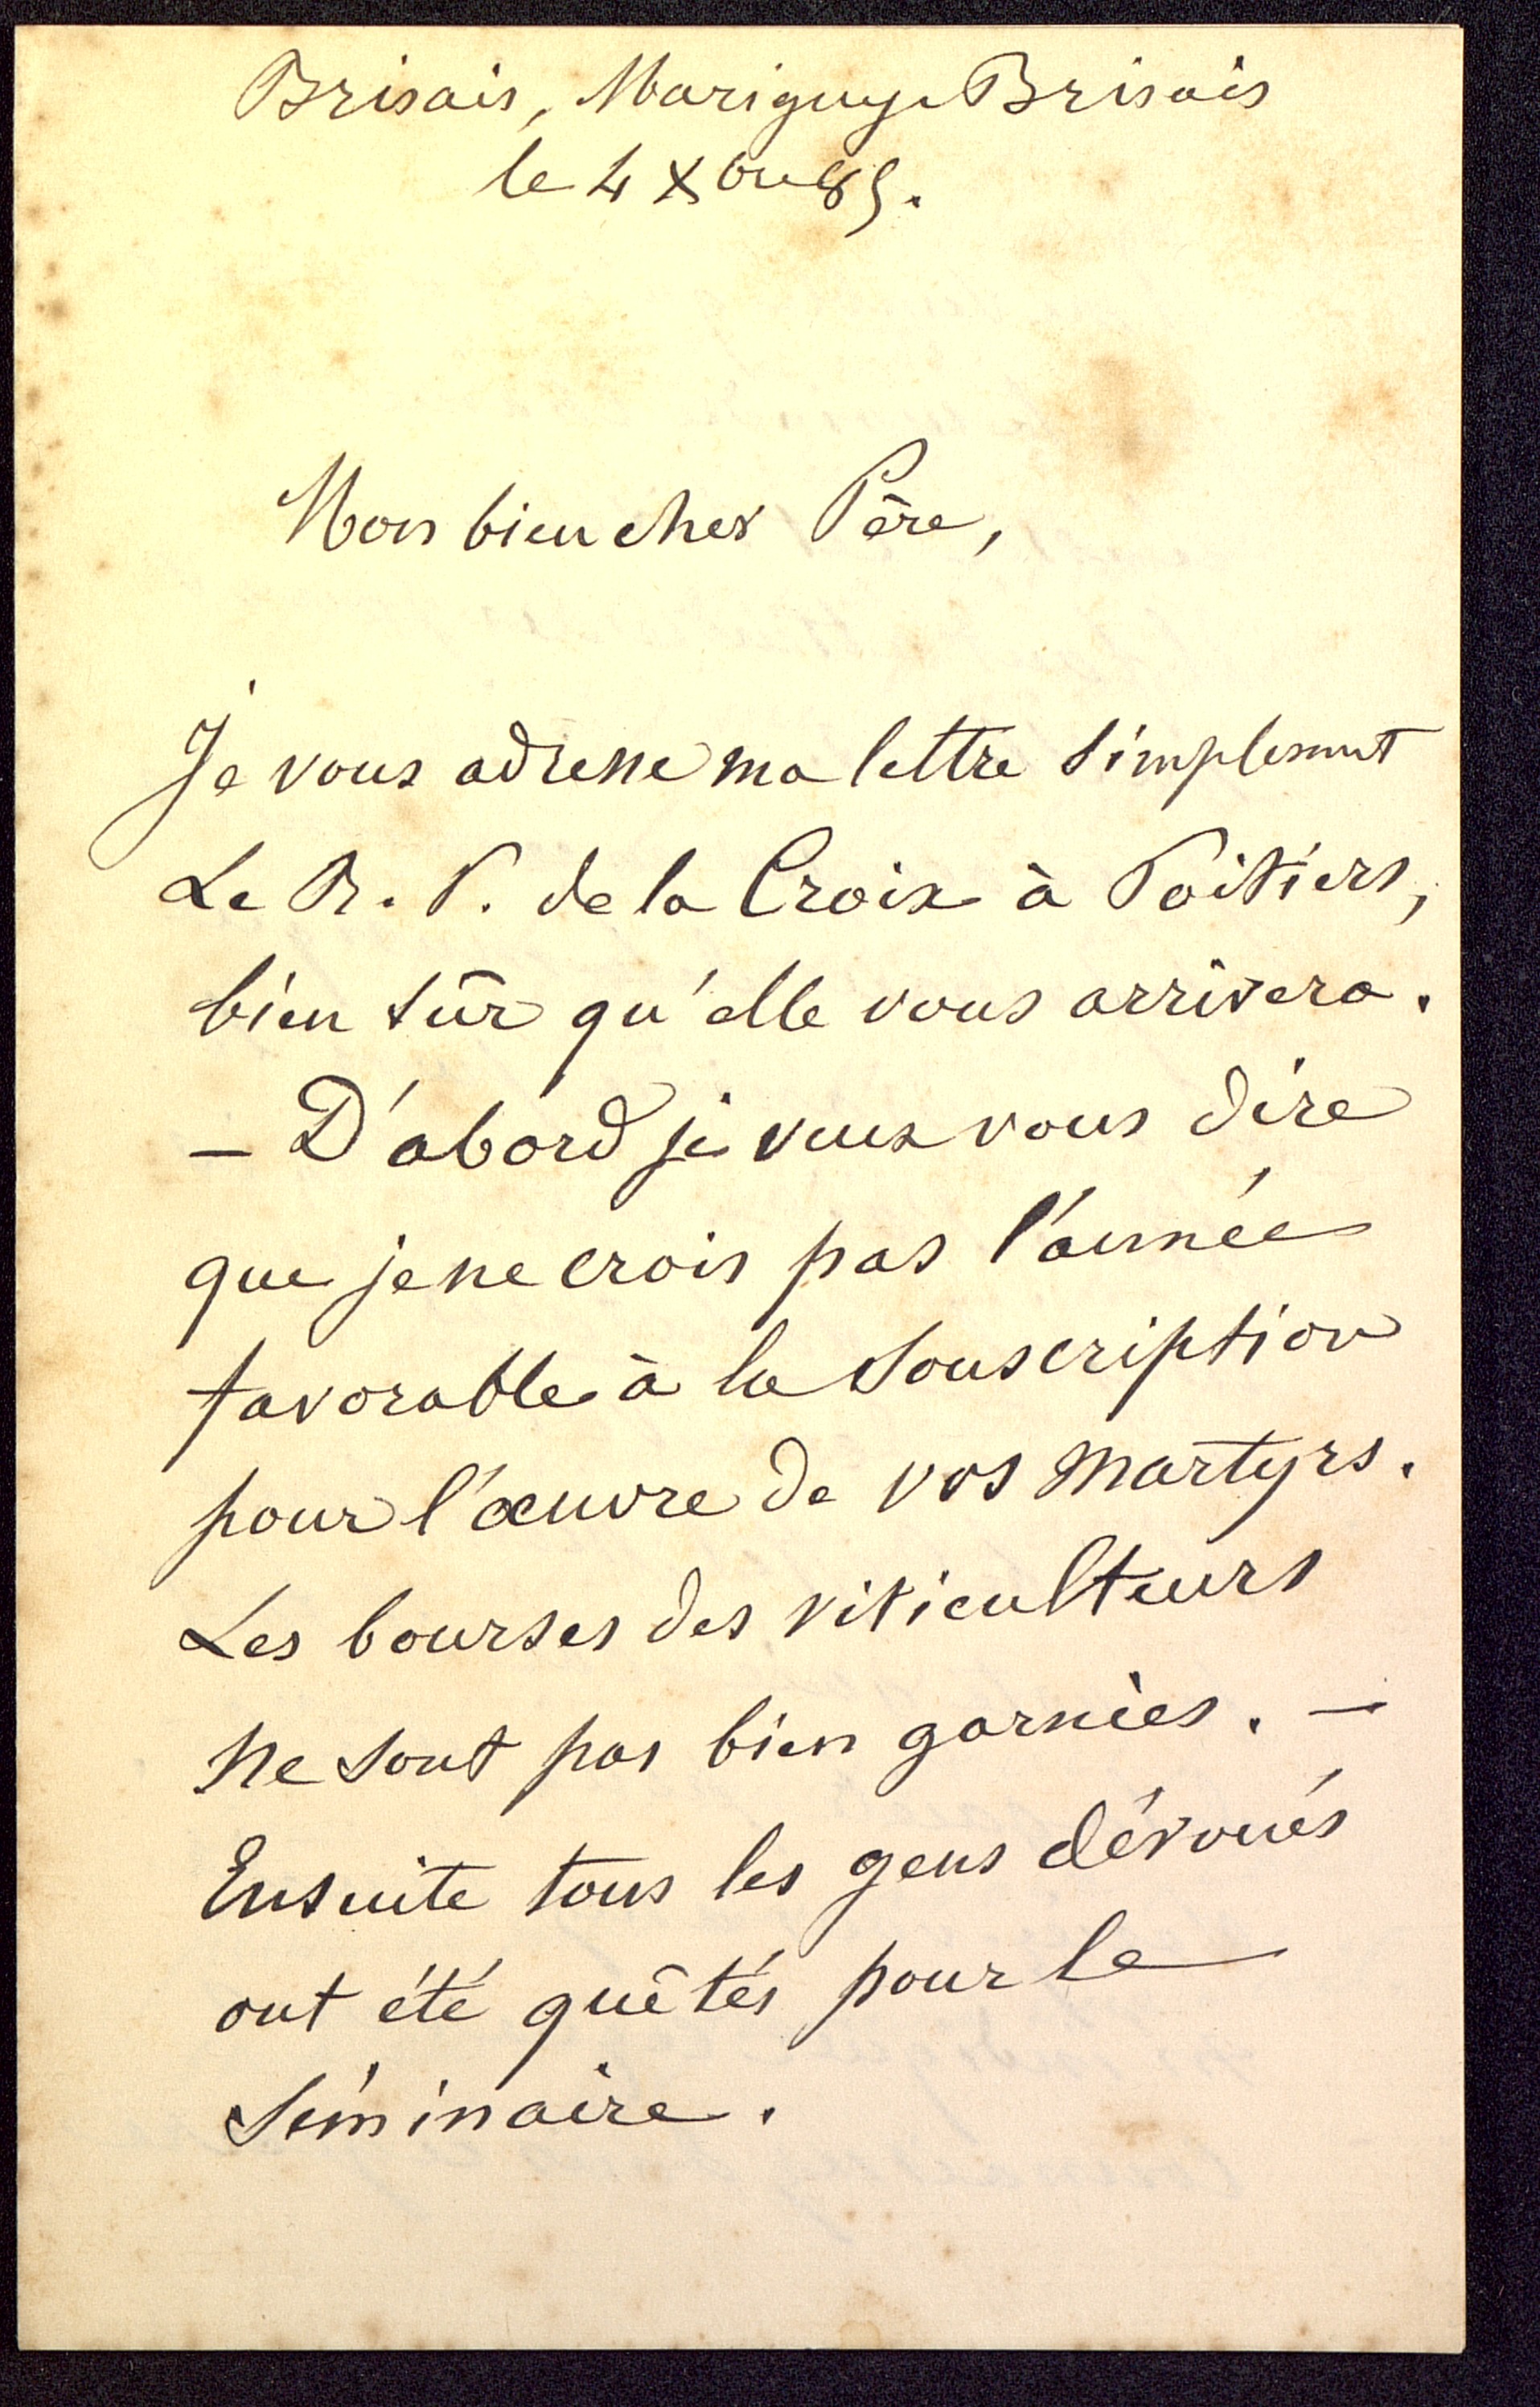 Brisais, Marigny-Brisais
le 4 Xbre 85.
Mon bien cher Père,
Je vous adresse ma lettre simplement
Le R. P. de la Croix à Poitiers,
bien sûr qu'elle vous arrivera.
— D'abord je veux vous dire
que je ne crois pas l'année
favorable à la Souscription
pour l'œuvre de vos Martyrs.
Les bourses des viticulteurs
ne sont pas bien garnies. —
Ensuite tous les gens dévoués
ont été quêtés pour le
Séminaire.